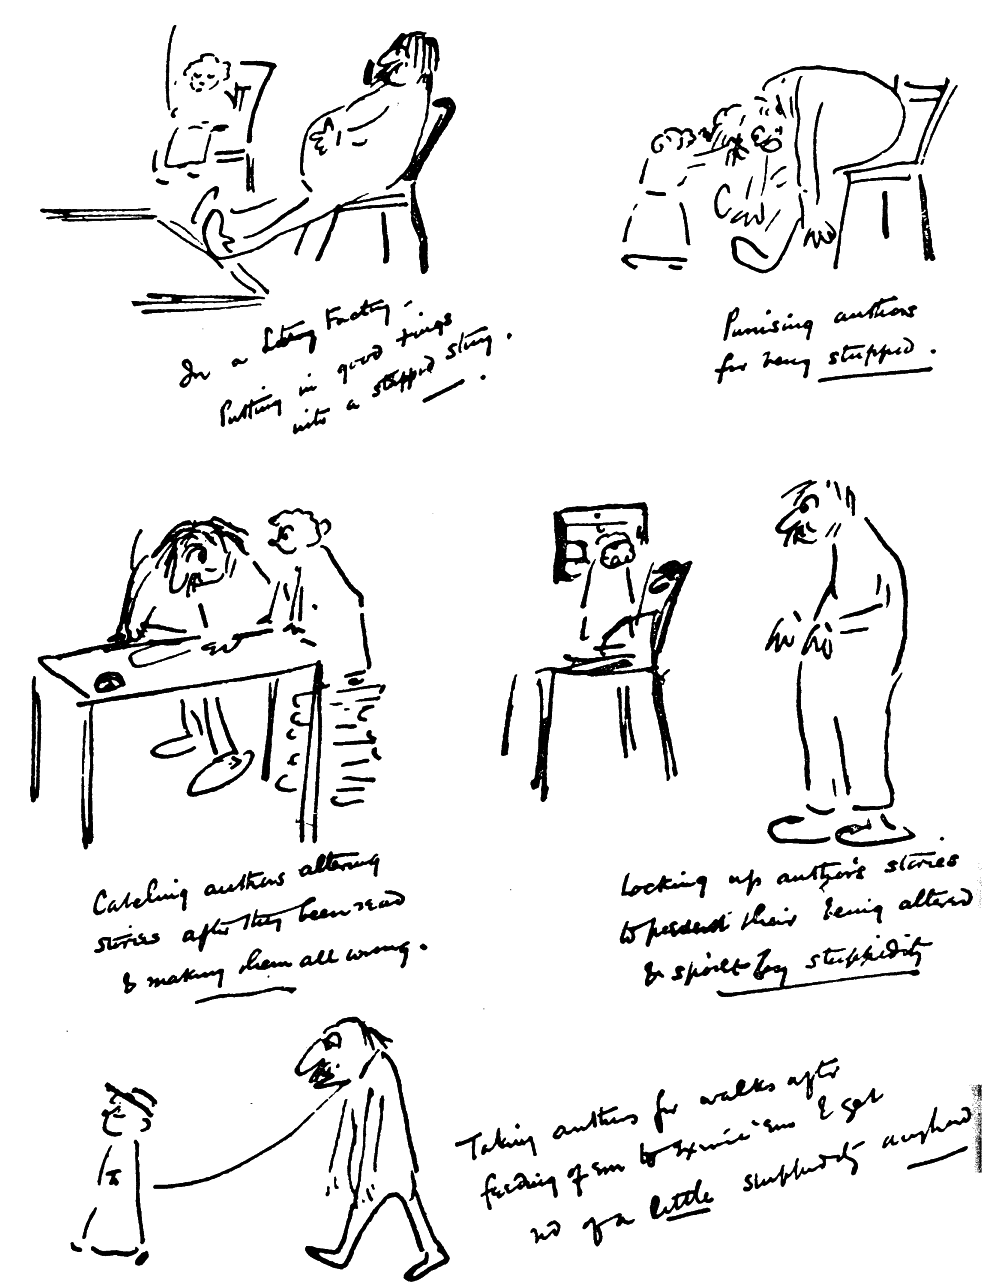 In a Literary Factory.
Putting in good tings
into a stuppid story.
Punising authors
for being stuppid.
Catching authors altering
stories after they been read
& making them all wrong.
Locking up author's stories
to prevent their being altered
& spoilt by stuppidity
Taking authors for walks after
feeding of em to exercise em & get
rid of a little stuppiddity